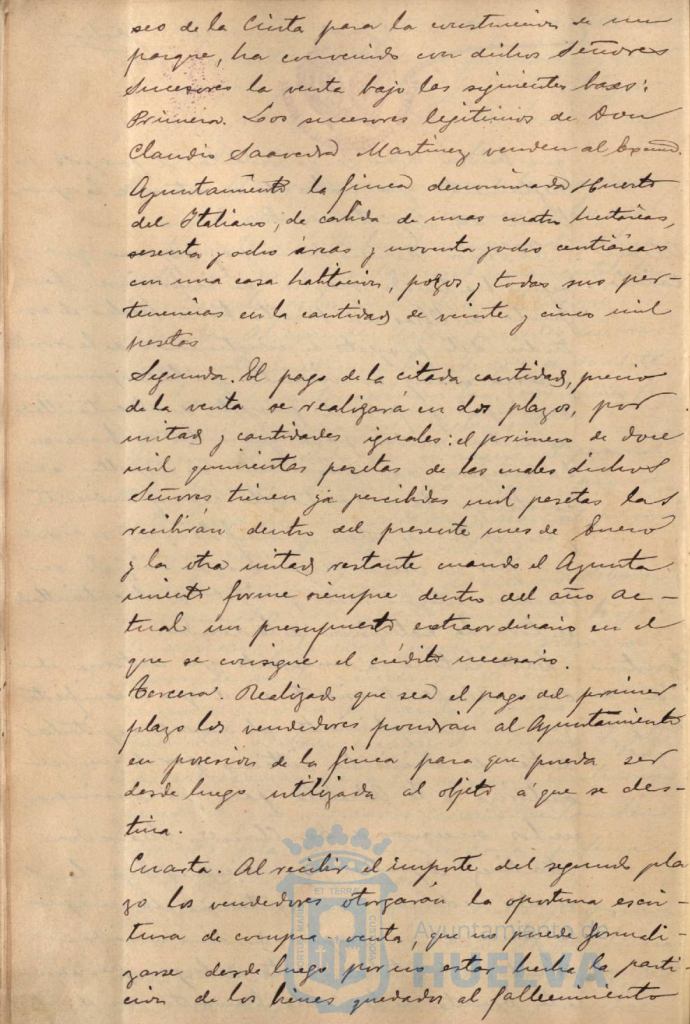 seo de la Cinta para la construccion de un
parque, ha convenido con dichos Señores
Sucesores la venta bajo las siguientes bases:
Primera. Los sucesores legitimos de Don
Claudio Saavedra Martinez venden al Excmo.
Ayuntamiento la finca denominada Huerto
del Italiano, de cabida de unas cuatro hectáreas,
sesenta y ocho áreas y noventa y ocho centiáreas
con una casa habitación, pozos y todas sus per-
tenencias en la cantidad de veinte y cinco mil
pesetas
Segunda. El pago de la citada cantidad, precio
de la venta se realizará en dos plazos, por
mitad y cantidades iguales: el primero de doce
mil quinientas pesetas de las cuales dichos
Señores tienen ya percibidas mil pesetas las
recibirán dentro del presente mes de Enero
y la otra mitad restante cuando el Ayunta
miento forme siempre dentro del año ac-
tual un presupuesto extraordinario en el
que se consigue el crédito necesario.
Tercera. Realizado que sea el pago del primer
plazo los vendedores pondrán al Ayuntamiento
en posesión de la finca para que pueda ser
desde luego utilizada al objeto á que se des-
tina.
Cuarta. Al recibir el importe del segundo pla
zo los vendedores otorgarán la oportuna escri-
tura de compra-venta, que no puede formali-
zarse desde luego por no estar hecha la parti-
cion de los bienes quedados al fallecimiento
ET TERRA
Ayuntamiento de
HUELVA